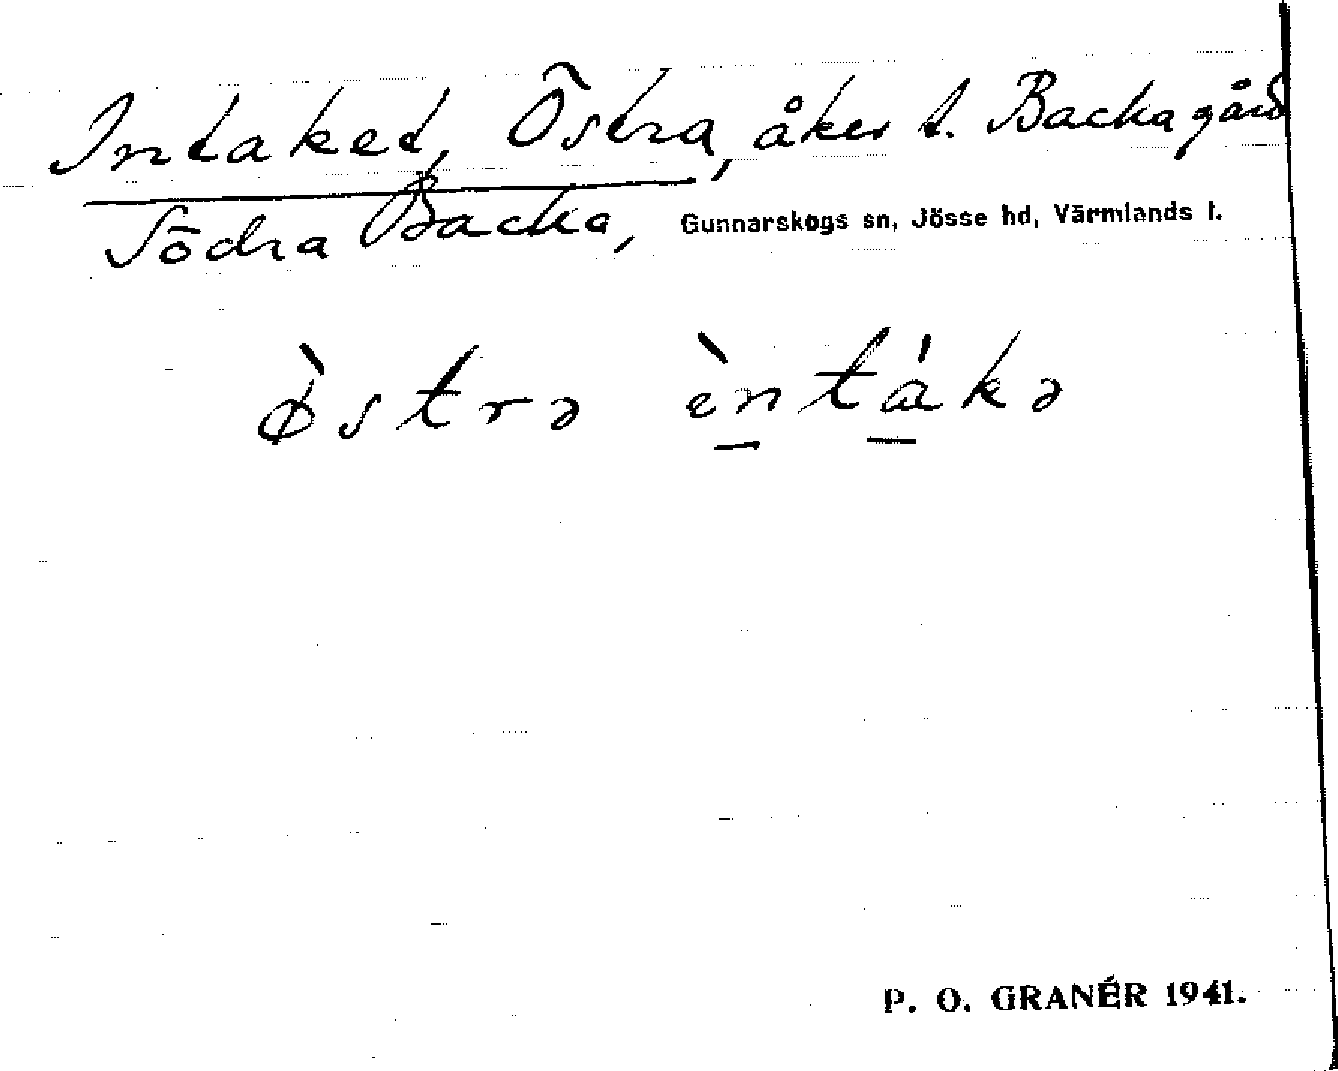 Intaket, Östra, åker t. Backagård
Södra Backa, Gunnarskogs sn, Jösse hd, Värmlands l.
ø̀strə èntákə
P. O. GRANÉR 1941.